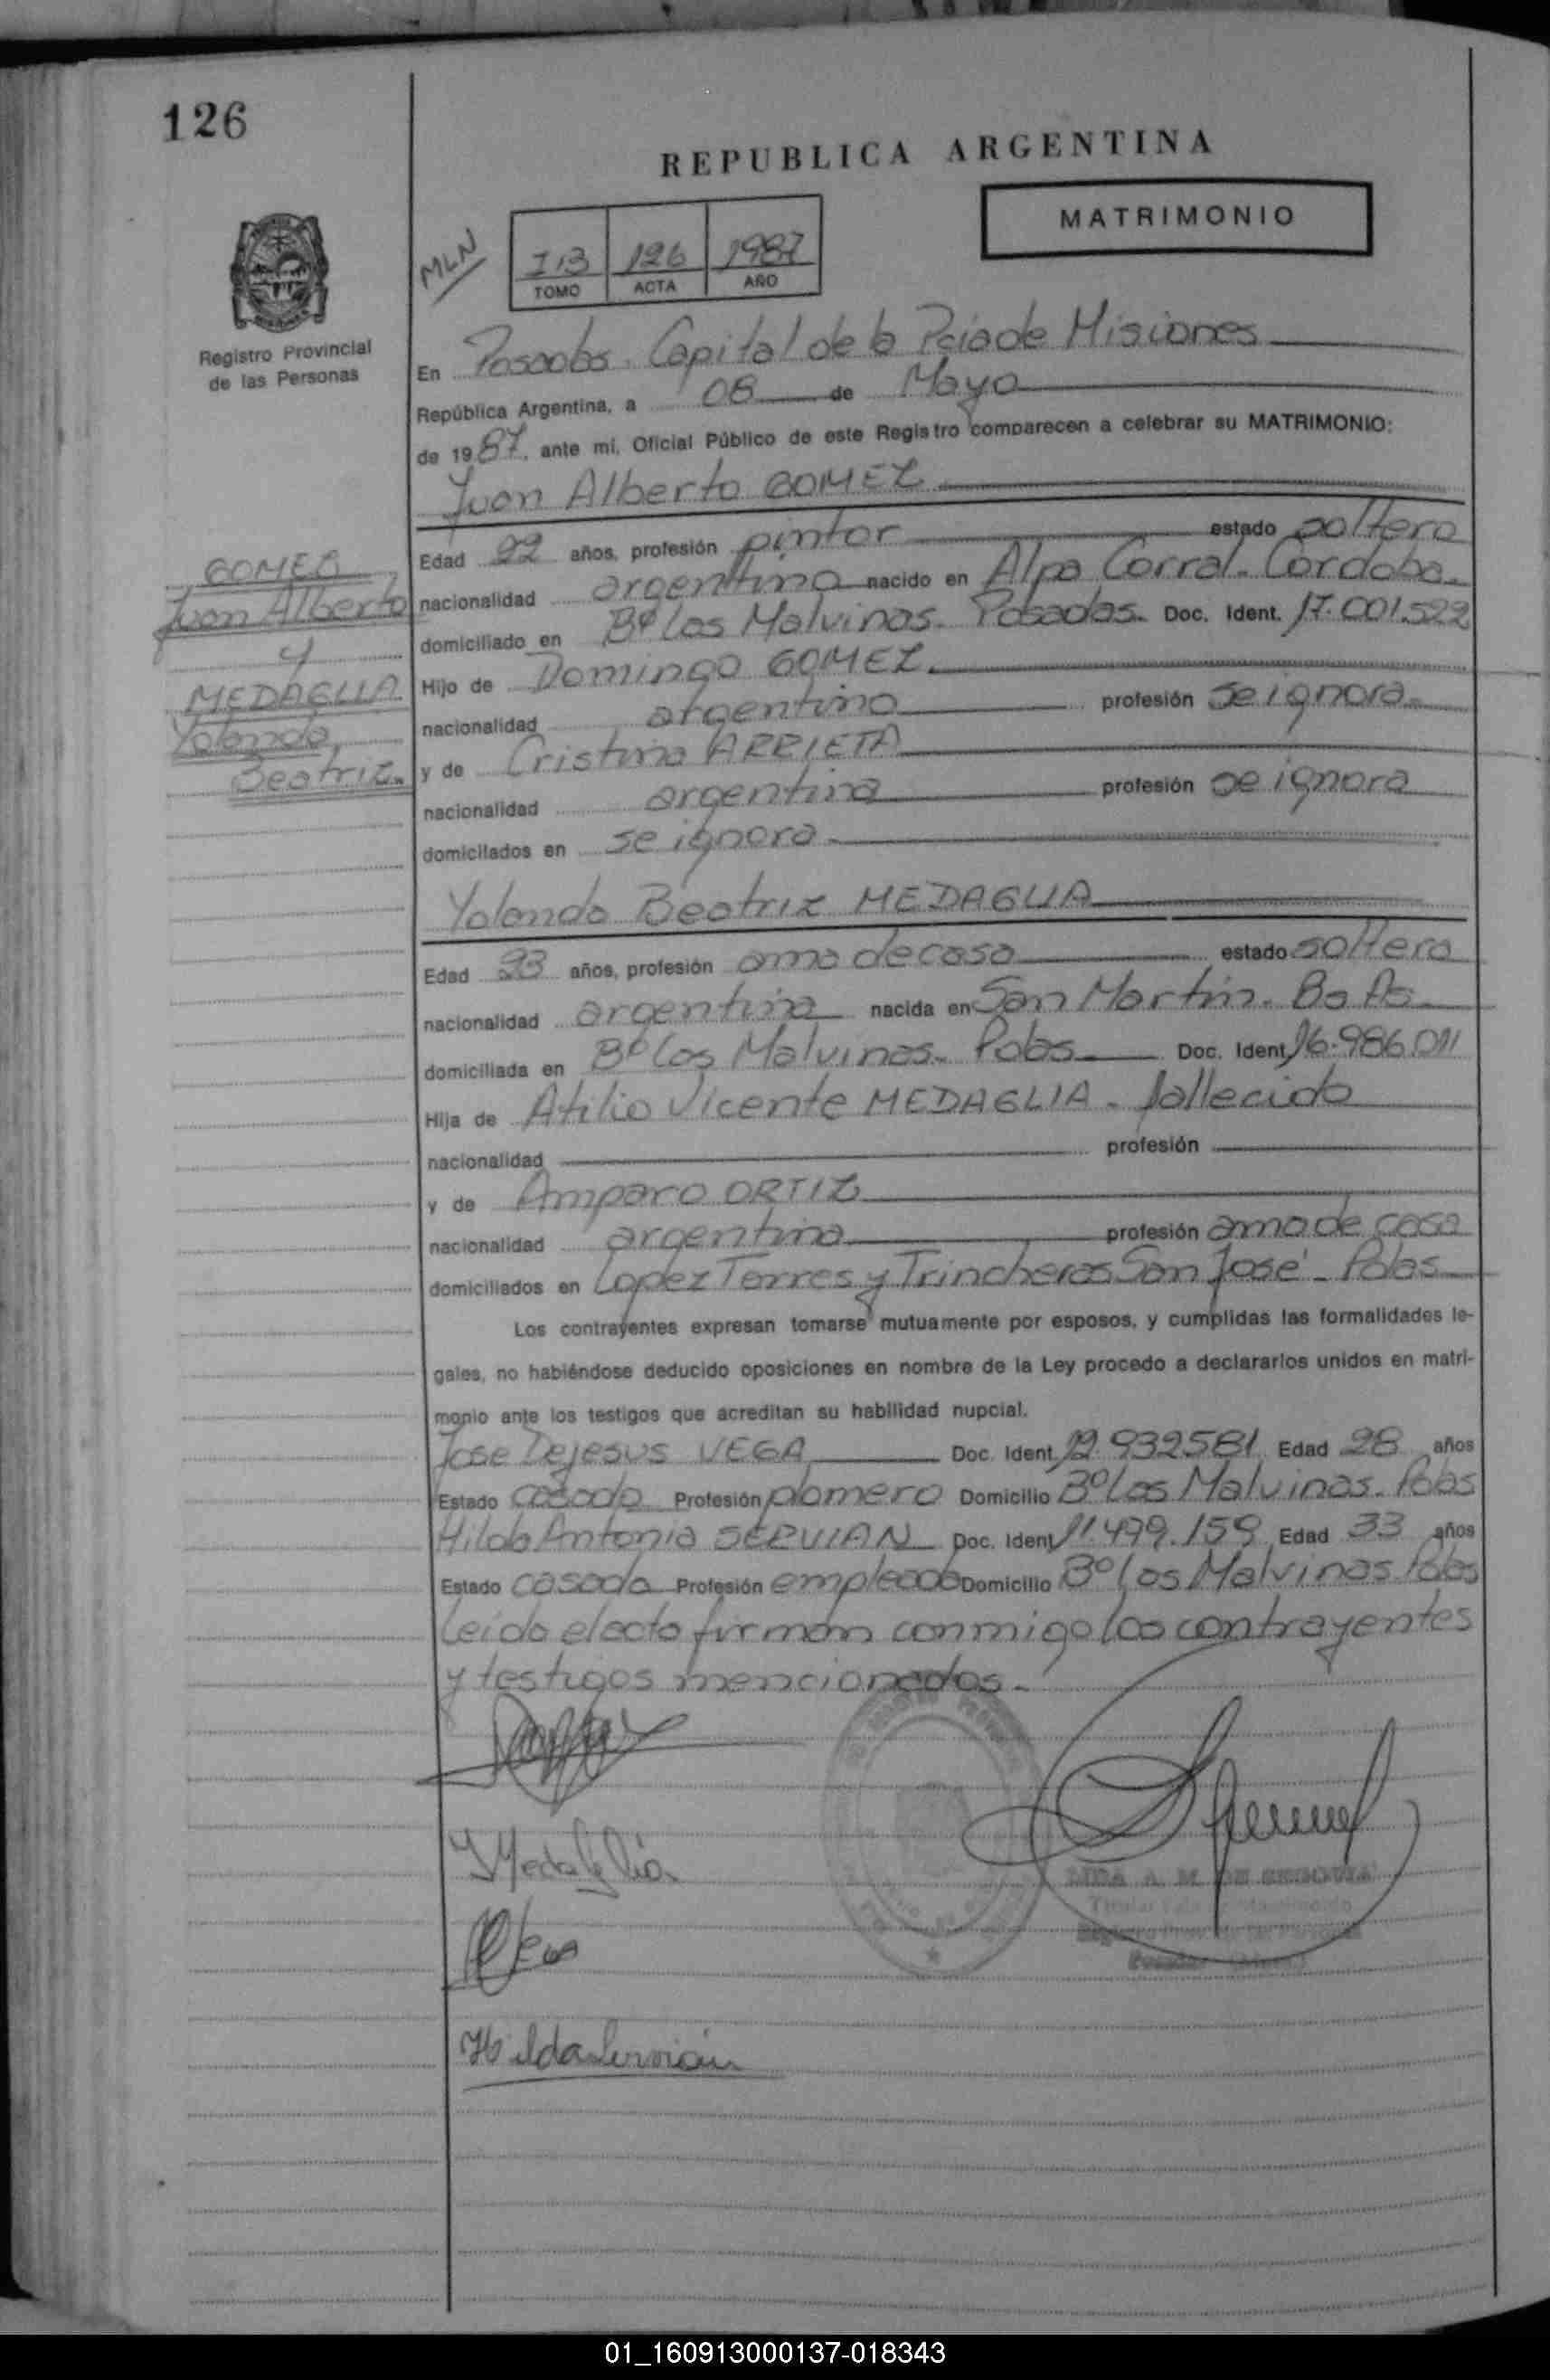 126
REPUBLICA ARGENTINA
MATRIMONIO
MLN
I,3 126 1987
TOMO ACTA AÑO
Registro Provincial
de las Personas
En Posadas. Capital de la Pcia de Misiones
República Argentina, a 08 de Mayo
de 1987, ante mi, Oficial Público de este Registro comparecen a celebrar su MATRIMONIO:
Juan Alberto GOMEZ
Edad 22 años, profesión pintor estado soltero
nacionalidad argentino nacido en Alpa Corral. Cordoba.
domiciliado en Bº Las Malvinas. Posadas. Doc. Ident. 17.001.522
Hijo de Domingo GOMEZ.
nacionalidad argentino profesión se ignora.
y de Cristina ARRIETA
nacionalidad argentina profesión se ignora
domiciliados en se ignora
GOMEZ
Juan Alberto
y
MEDAGLIA
Yolanda
Beatriz.
Yolanda Beatriz MEDAGLIA
Edad 23 años, profesión ama de casa estado soltera
nacionalidad argentina nacida en San Martín. Bs As.
domiciliada en Bº Las Malvinas. Pdas Doc. Ident. 16.986.011
Hija de Atilio Vicente MEDAGLIA. fallecido
nacionalidad profesión
y de Amparo ORTIZ
nacionalidad argentina profesión ama de casa
domiciliados en Lopez Torres y Trincheras San José - Pdas
Los contrayentes expresan tomarse mutuamente por esposos, y cumplidas las formalidades le-
gales, no habiéndose deducido oposiciones en nombre de la Ley procedo a declararlos unidos en matri-
monio ante los testigos que acreditan su habilidad nupcial.
Jose Dejesus VEGA Doc. Ident. 12.932581 Edad 28 años
Estado casado Profesión plomero Domicilio Bº Las Malvinas. Pdas
Hilda Antonia SERVIAN Doc. Ident. 11.499.159 Edad 33 años
Estado casada Profesión empleada Domicilio Bº Las Malvinas Pdas
Leída el acta firman conmigo los contrayentes
y testigos mencionados.
YMedaglia
Hilda Servián
LIDA A. M. DE SEGOVIA
01_160913000137-018343